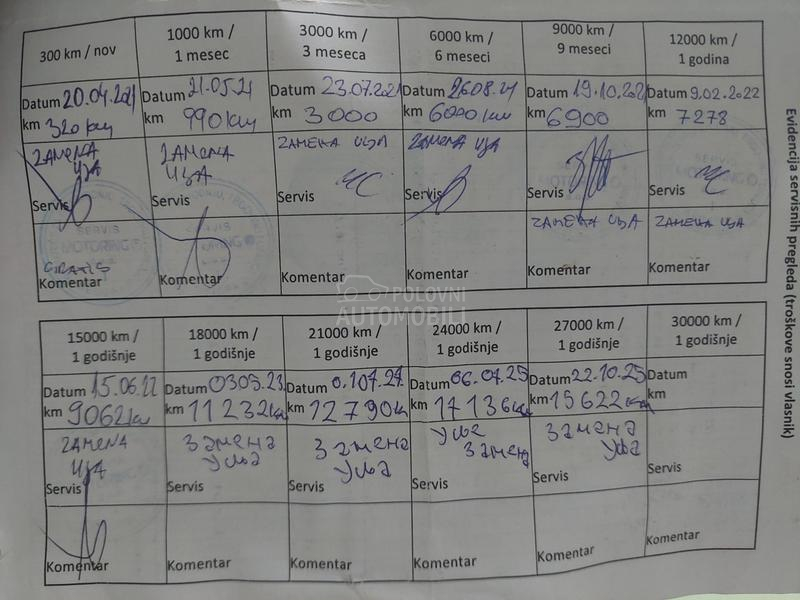 300 km / nov
1000 km /
1 mesec
3000 km /
3 meseca
6000 km /
6 meseci
9000 km /
9 meseci
12000 km /
1 godina
Datum 20.04.2021
km 320 km
Datum 21.05.21
990 km
Datum 23.07.2021
km 3000
Datum 26.08.21
km 6000 km
Datum 19.10.2021
km 6900
Datum 9.02.2022
km 7278
ZAMENA
ULJA
Servis
ZAMENA
ULJA
Servis
ZAMENA ULJA
Servis
ZAMENA ULJA
Servis
Servis
Servis
GRATIS
Komentar
Komentar
Komentar
Komentar
ZAMENA ULJA
Komentar
ZAMENA ULJA
Komentar
SERVIS
MOTORING
POLOVNI
AUTOMOBILI
15000 km /
1 godišnje
18000 km /
1 godišnje
21000 km /
1 godišnje
24000 km /
1 godišnje
27000 km /
1 godišnje
30000 km /
1 godišnje
Datum 15.06.22
km 9062 km
Datum 0305.23.
km 11232 km
Datum
km 12790 km
Datum 06.07.25
km 17136 km
Datum 22.10.25
km 15622 km
Datum
km
ZAMENA
ULJA
Servis
Замена
Уља
Servis
Замена
Уља
Servis
Уље
Замена
Servis
Замена
Уља
Servis
Servis
Komentar
Komentar
Komentar
Komentar
Komentar
Komentar
Evidencija servisnih pregleda (troškove snosi vlasnik)